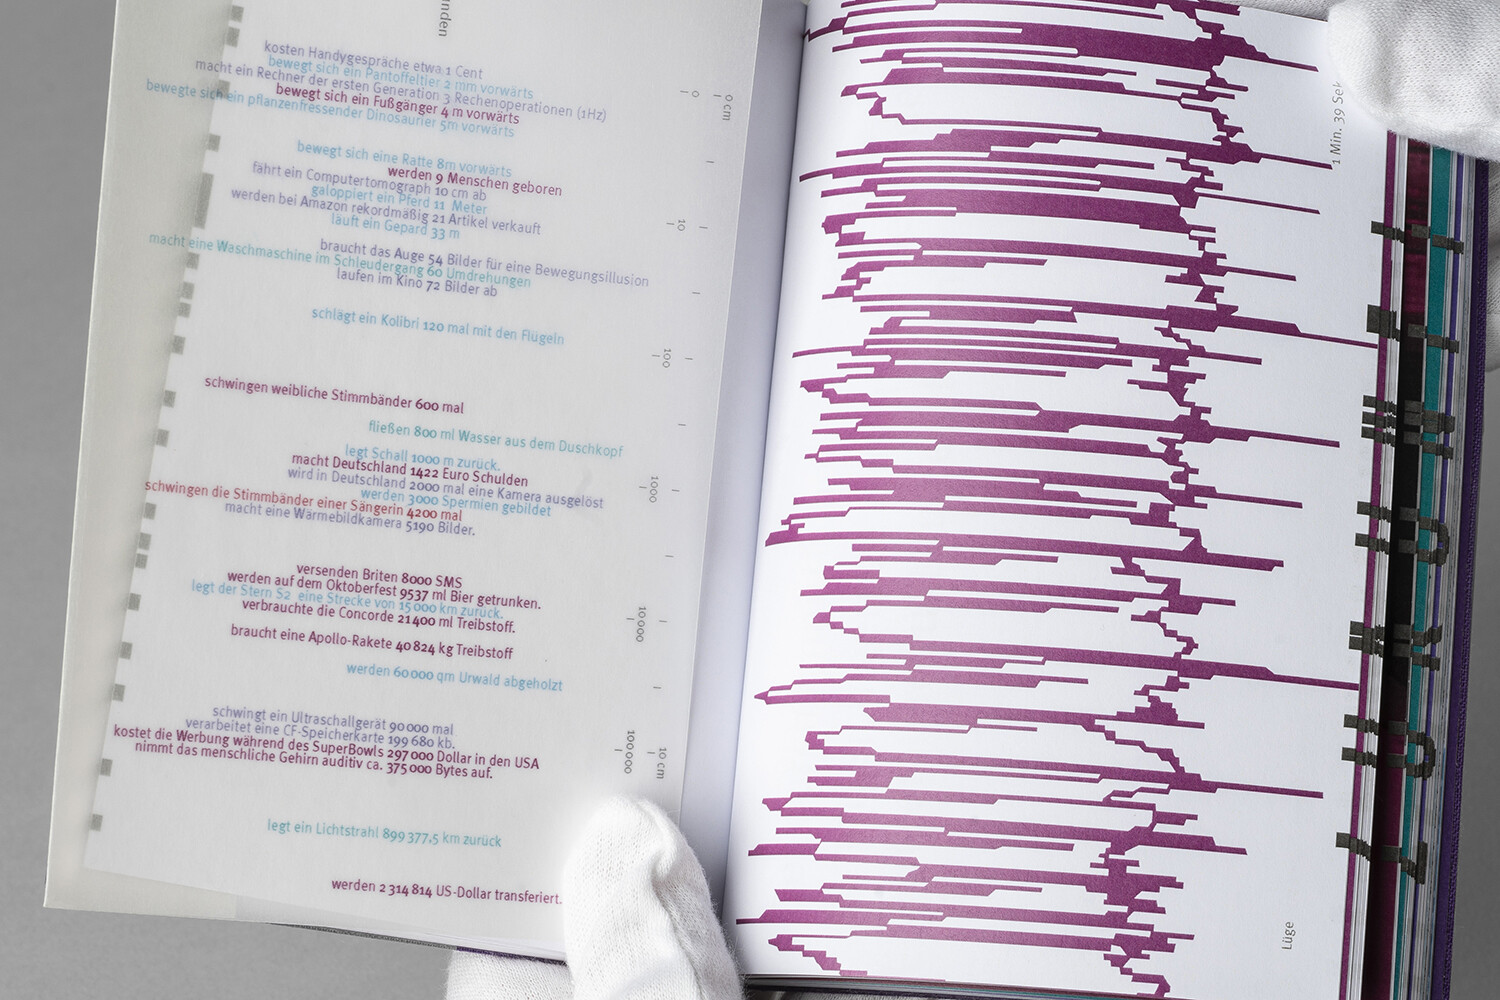 nden
kosten Handygespräche etwa 1 Cent
bewegt sich ein Pantoffeltier 2 mm vorwärts
macht ein Rechner der ersten Generation 3 Rechenoperationen (1Hz)
bewegt sich ein Fußgänger 4 m vorwärts
bewegte sich ein pflanzenfressender Dinosaurier 5m vorwärts
bewegt sich eine Ratte 8m vorwärts
werden 9 Menschen geboren
fährt ein Computertomograph 10 cm ab
galoppiert ein Pferd 11 Meter
werden bei Amazon rekordmäßig 21 Artikel verkauft
läuft ein Gepard 33 m
braucht das Auge 54 Bilder für eine Bewegungsillusion
macht eine Waschmaschine im Schleudergang 60 Umdrehungen
laufen im Kino 72 Bilder ab
schlägt ein Kolibri 120 mal mit den Flügeln
schwingen weibliche Stimmbänder 600 mal
fließen 800 ml Wasser aus dem Duschkopf
legt Schall 1000 m zurück.
macht Deutschland 1422 Euro Schulden
wird in Deutschland 2000 mal eine Kamera ausgelöst
werden 3000 Spermien gebildet
schwingen die Stimmbänder einer Sängerin 4200 mal
macht eine Wärmebildkamera 5190 Bilder.
versenden Briten 8000 SMS
werden auf dem Oktoberfest 9537 ml Bier getrunken.
legt der Stern S2 eine Strecke von 15 000 km zurück.
verbrauchte die Concorde 21 400 ml Treibstoff.
braucht eine Apollo-Rakete 40 824 kg Treibstoff
werden 60 000 qm Urwald abgeholzt
schwingt ein Ultraschallgerät 90 000 mal
verarbeitet eine CF-Speicherkarte 199 680 kb.
kostet die Werbung während des SuperBowls 297 000 Dollar in den USA
nimmt das menschliche Gehirn auditiv ca. 375 000 Bytes auf.
legt ein Lichtstrahl 899 377,5 km zurück
werden 2 314 814 US-Dollar transferiert.
0
0 cm
10
100
1000
10 000
100 000
10 cm
1 Min. 39 Sek
Lüge